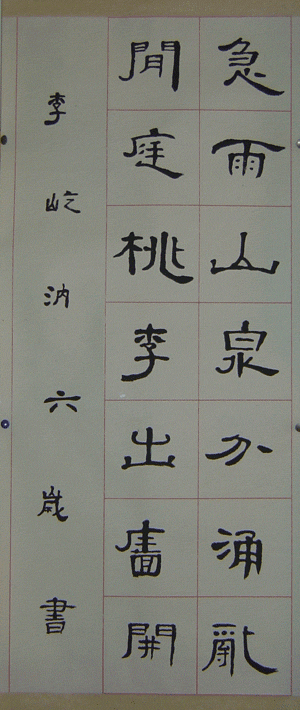 急雨山泉分涌亂
閒庭桃李出牆開
李屹汭六歲書